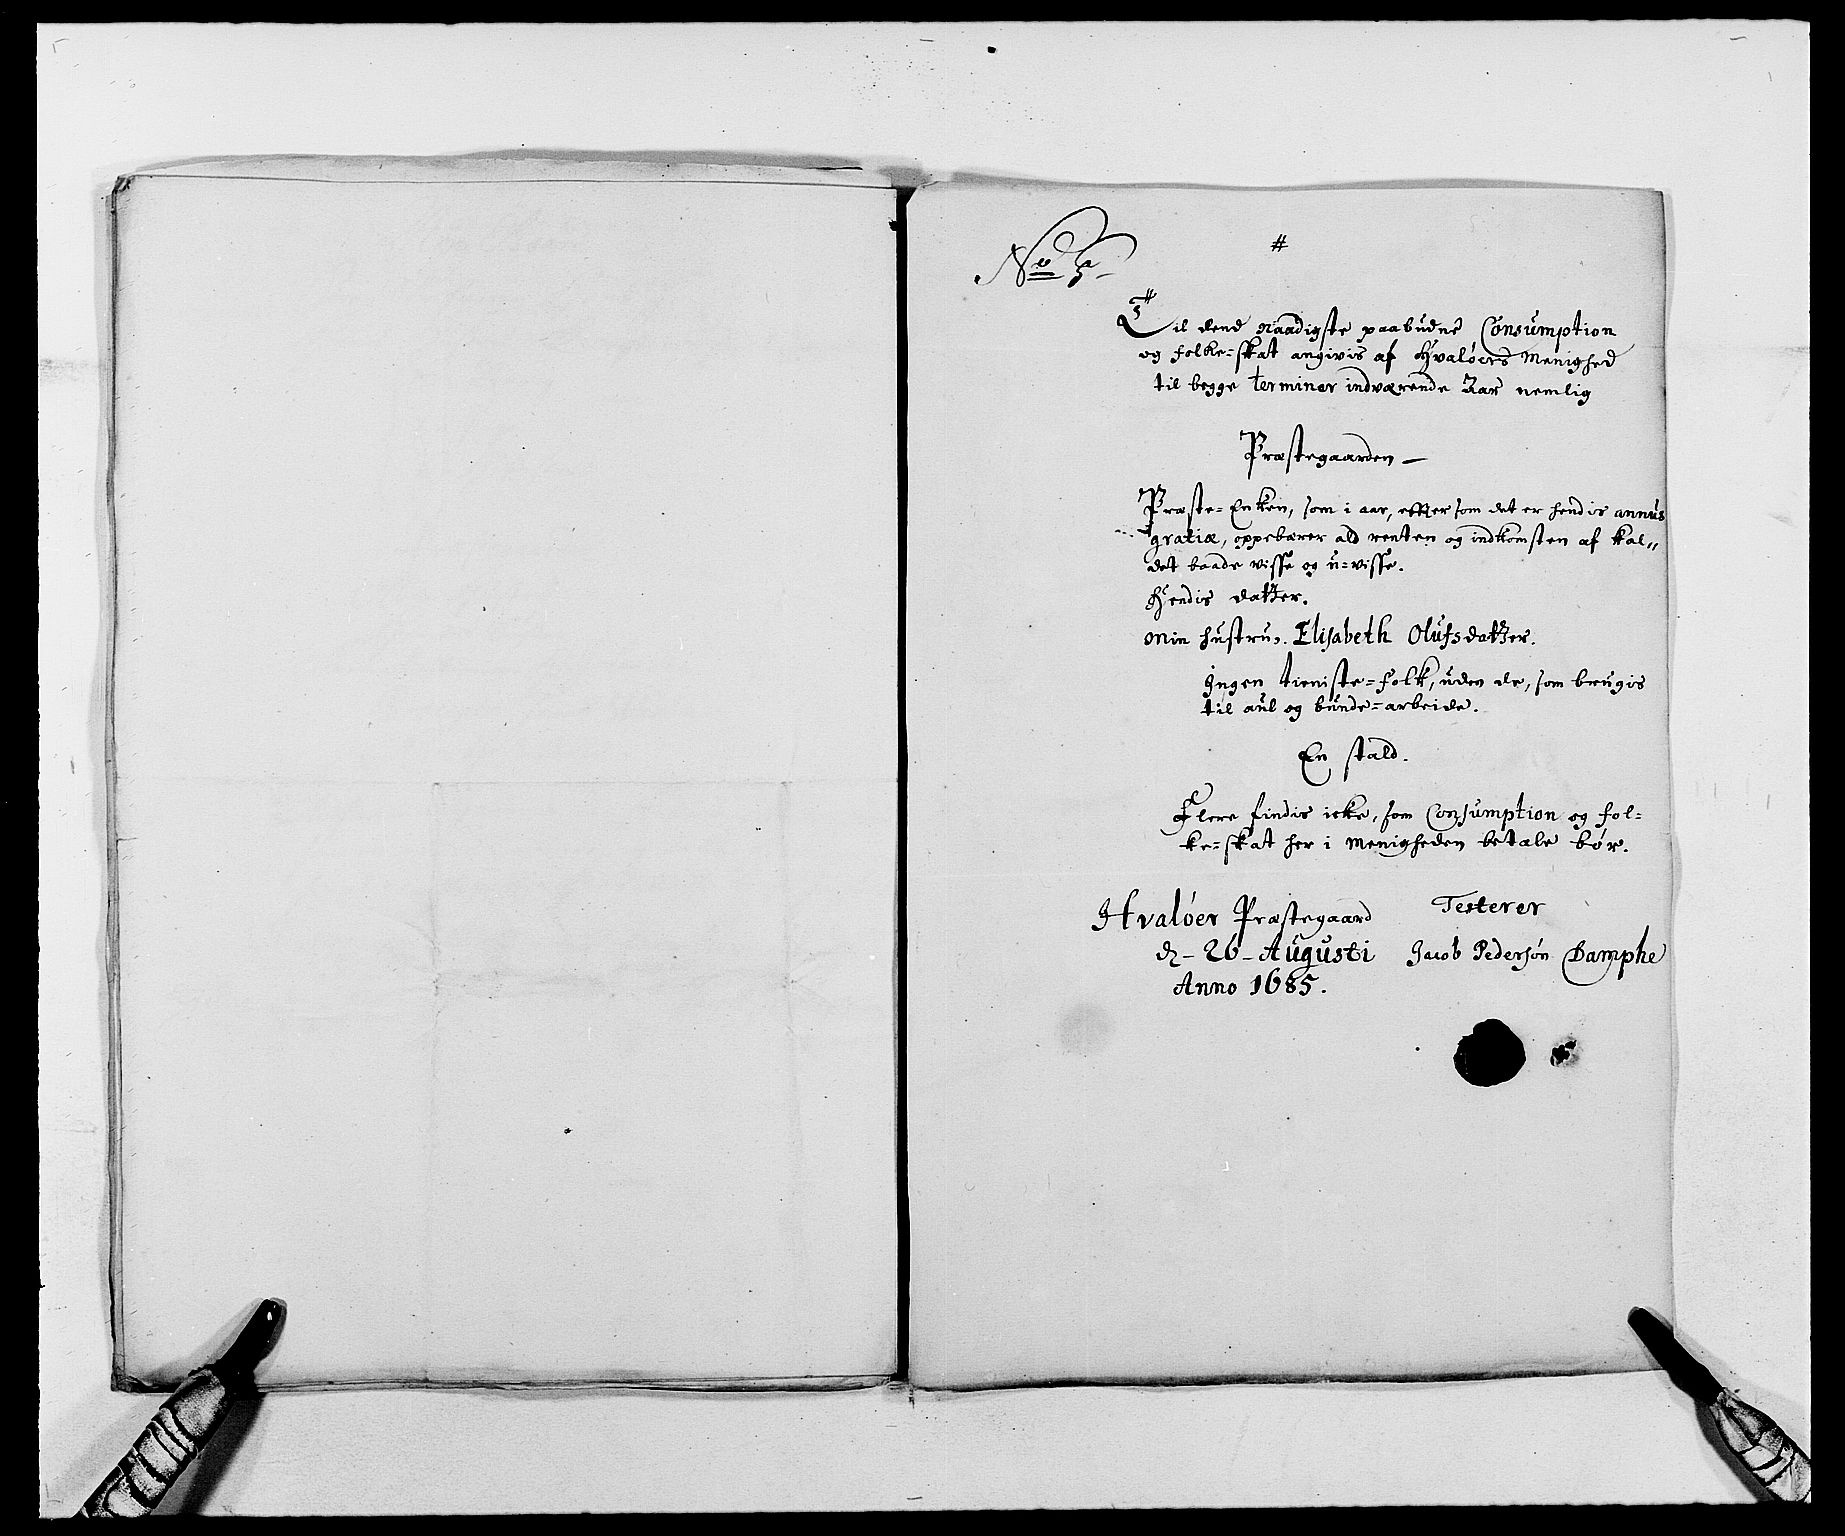 #
No 5.
Til dend naadigste paabudne Consumption
og folke=skat angivis af Hvaløers Menighed
til begge terminer indværende Aar nemlig
Præstegaarden —
Præste=Enken, som i aar, effter som det er hendis annus
gratiæ, oppebærer ald renten og indkomsten af kal„
det baade visse og u=visse.
Hendis datter.
Min hustru. Elisabeth Olufsdatter.
Ingen tieniste=folk, uden de, som brugis
til aul og bunde=arbeide.
En stald.
Flere findis icke, som Consumption og fol=
ke=skat her i Menigheden betale bør.
Hvaløer Præstegaard
d- 26- Augusti
Anno 1685.
Testerer
Jacob Pedersøn Damphe